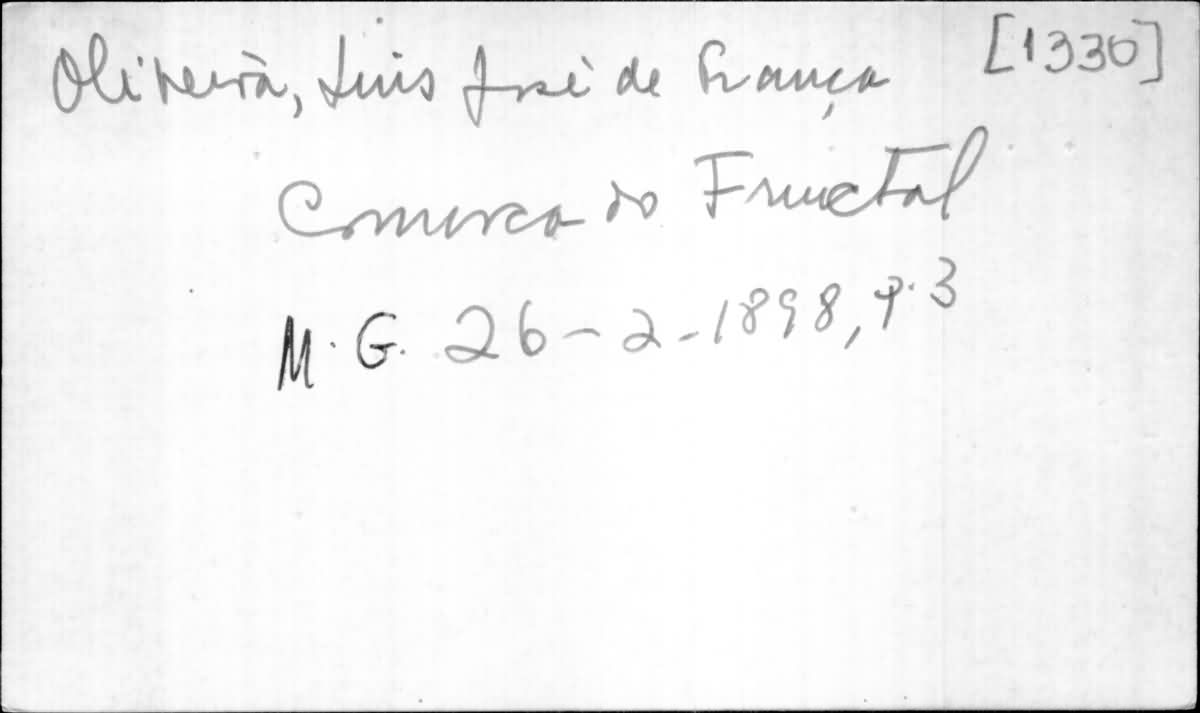 Oliveira, Luis José de França [1330]
Comarca do Fructal
M. G. 26-2-1898, p. 3